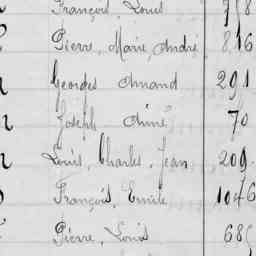 François, Louis 758
Pierre, Marie, André 816
Georges Amand 291
Joseph Aimé 70
Louis, Charles, Jean 209
François, Emile 1046
Pierre, Louis 685